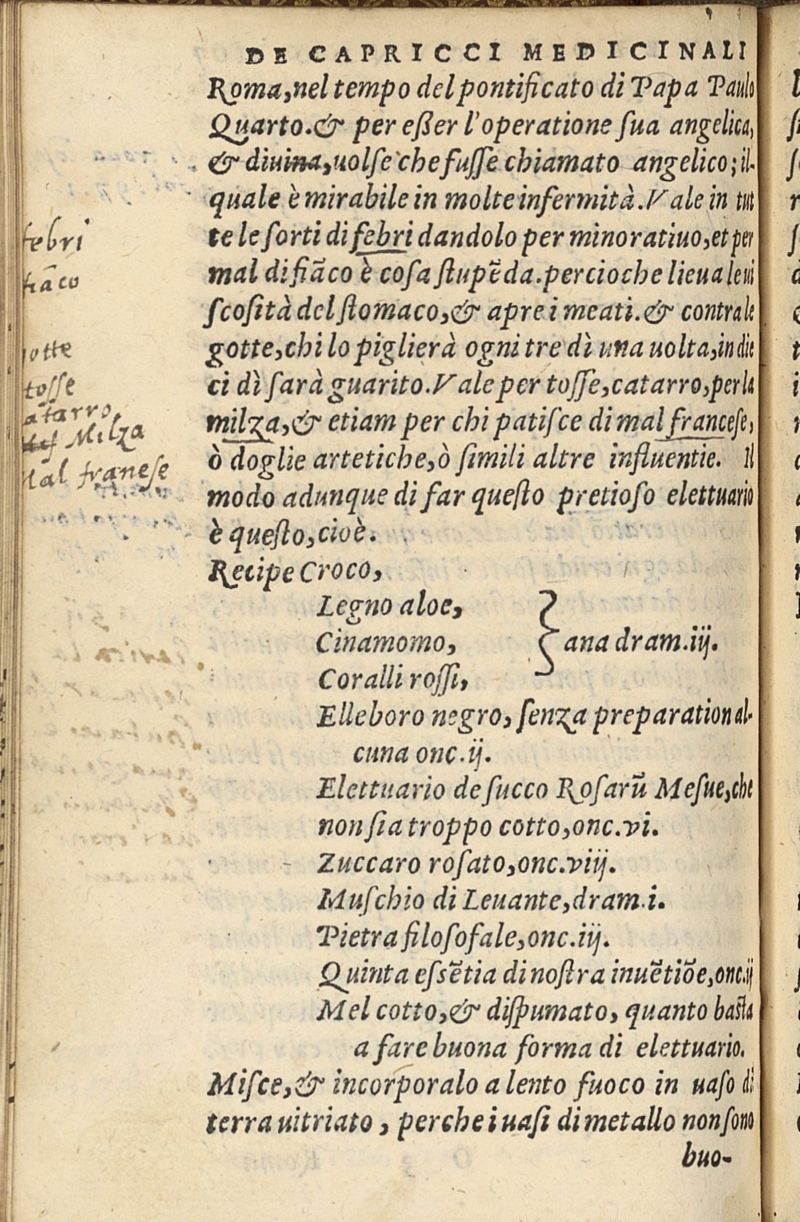 DE CAPRICCI MEDICINALI
Roma, nel tempo del pontificato di Papa Paulo
Quarto. & per eſſer l'operatione ſua angelica,
& diuina, uolſe che fuſſe chiamato angelico; il-
quale è mirabile in molte infermità. Vale in tut
te le ſorti di febri dandolo per minoratiuo, et per
mal di fiãco è coſa ſtupẽda. percioche lieua le ui
ſcoſità del ſtomaco, & apre i meati. & contra le
gotte, chi lo piglierà ogni tre dì una uolta, in die
ci dì ſarà guarito. Vale per toſſe, catarro, per la
milza, & etiam per chi patiſce di mal franceſe,
ò doglie artetiche, ò ſimili altre influentie. Il
modo adunque di far queſto pretioſo elettuario
è queſto, cioè.
Recipe Croco,
Legno aloe,
Cinamomo, ana dram. iij.
Coralli roſſi,
Elleboro negro, ſenza preparation al-
cuna onc. ij.
Elettuario de ſucco Roſarũ Meſue, che
non ſia troppo cotto, onc. vi.
Zuccaro roſato, onc. viij.
Muſchio di Leuante, dram. i.
Pietra filoſofale, onc. iij.
Quinta eſsẽtia di noſtra inuẽtiõe, onc. ij
Mel cotto, & diſpumato, quanto baſta
a fare buona forma di elettuario.
Miſce, & incorporalo a lento fuoco in uaſo di
terra uitriato, perche i uaſi di metallo non ſono
buo-
febri
fiãco
gotte
toſſe
catarro
Milza
Mal franeſe